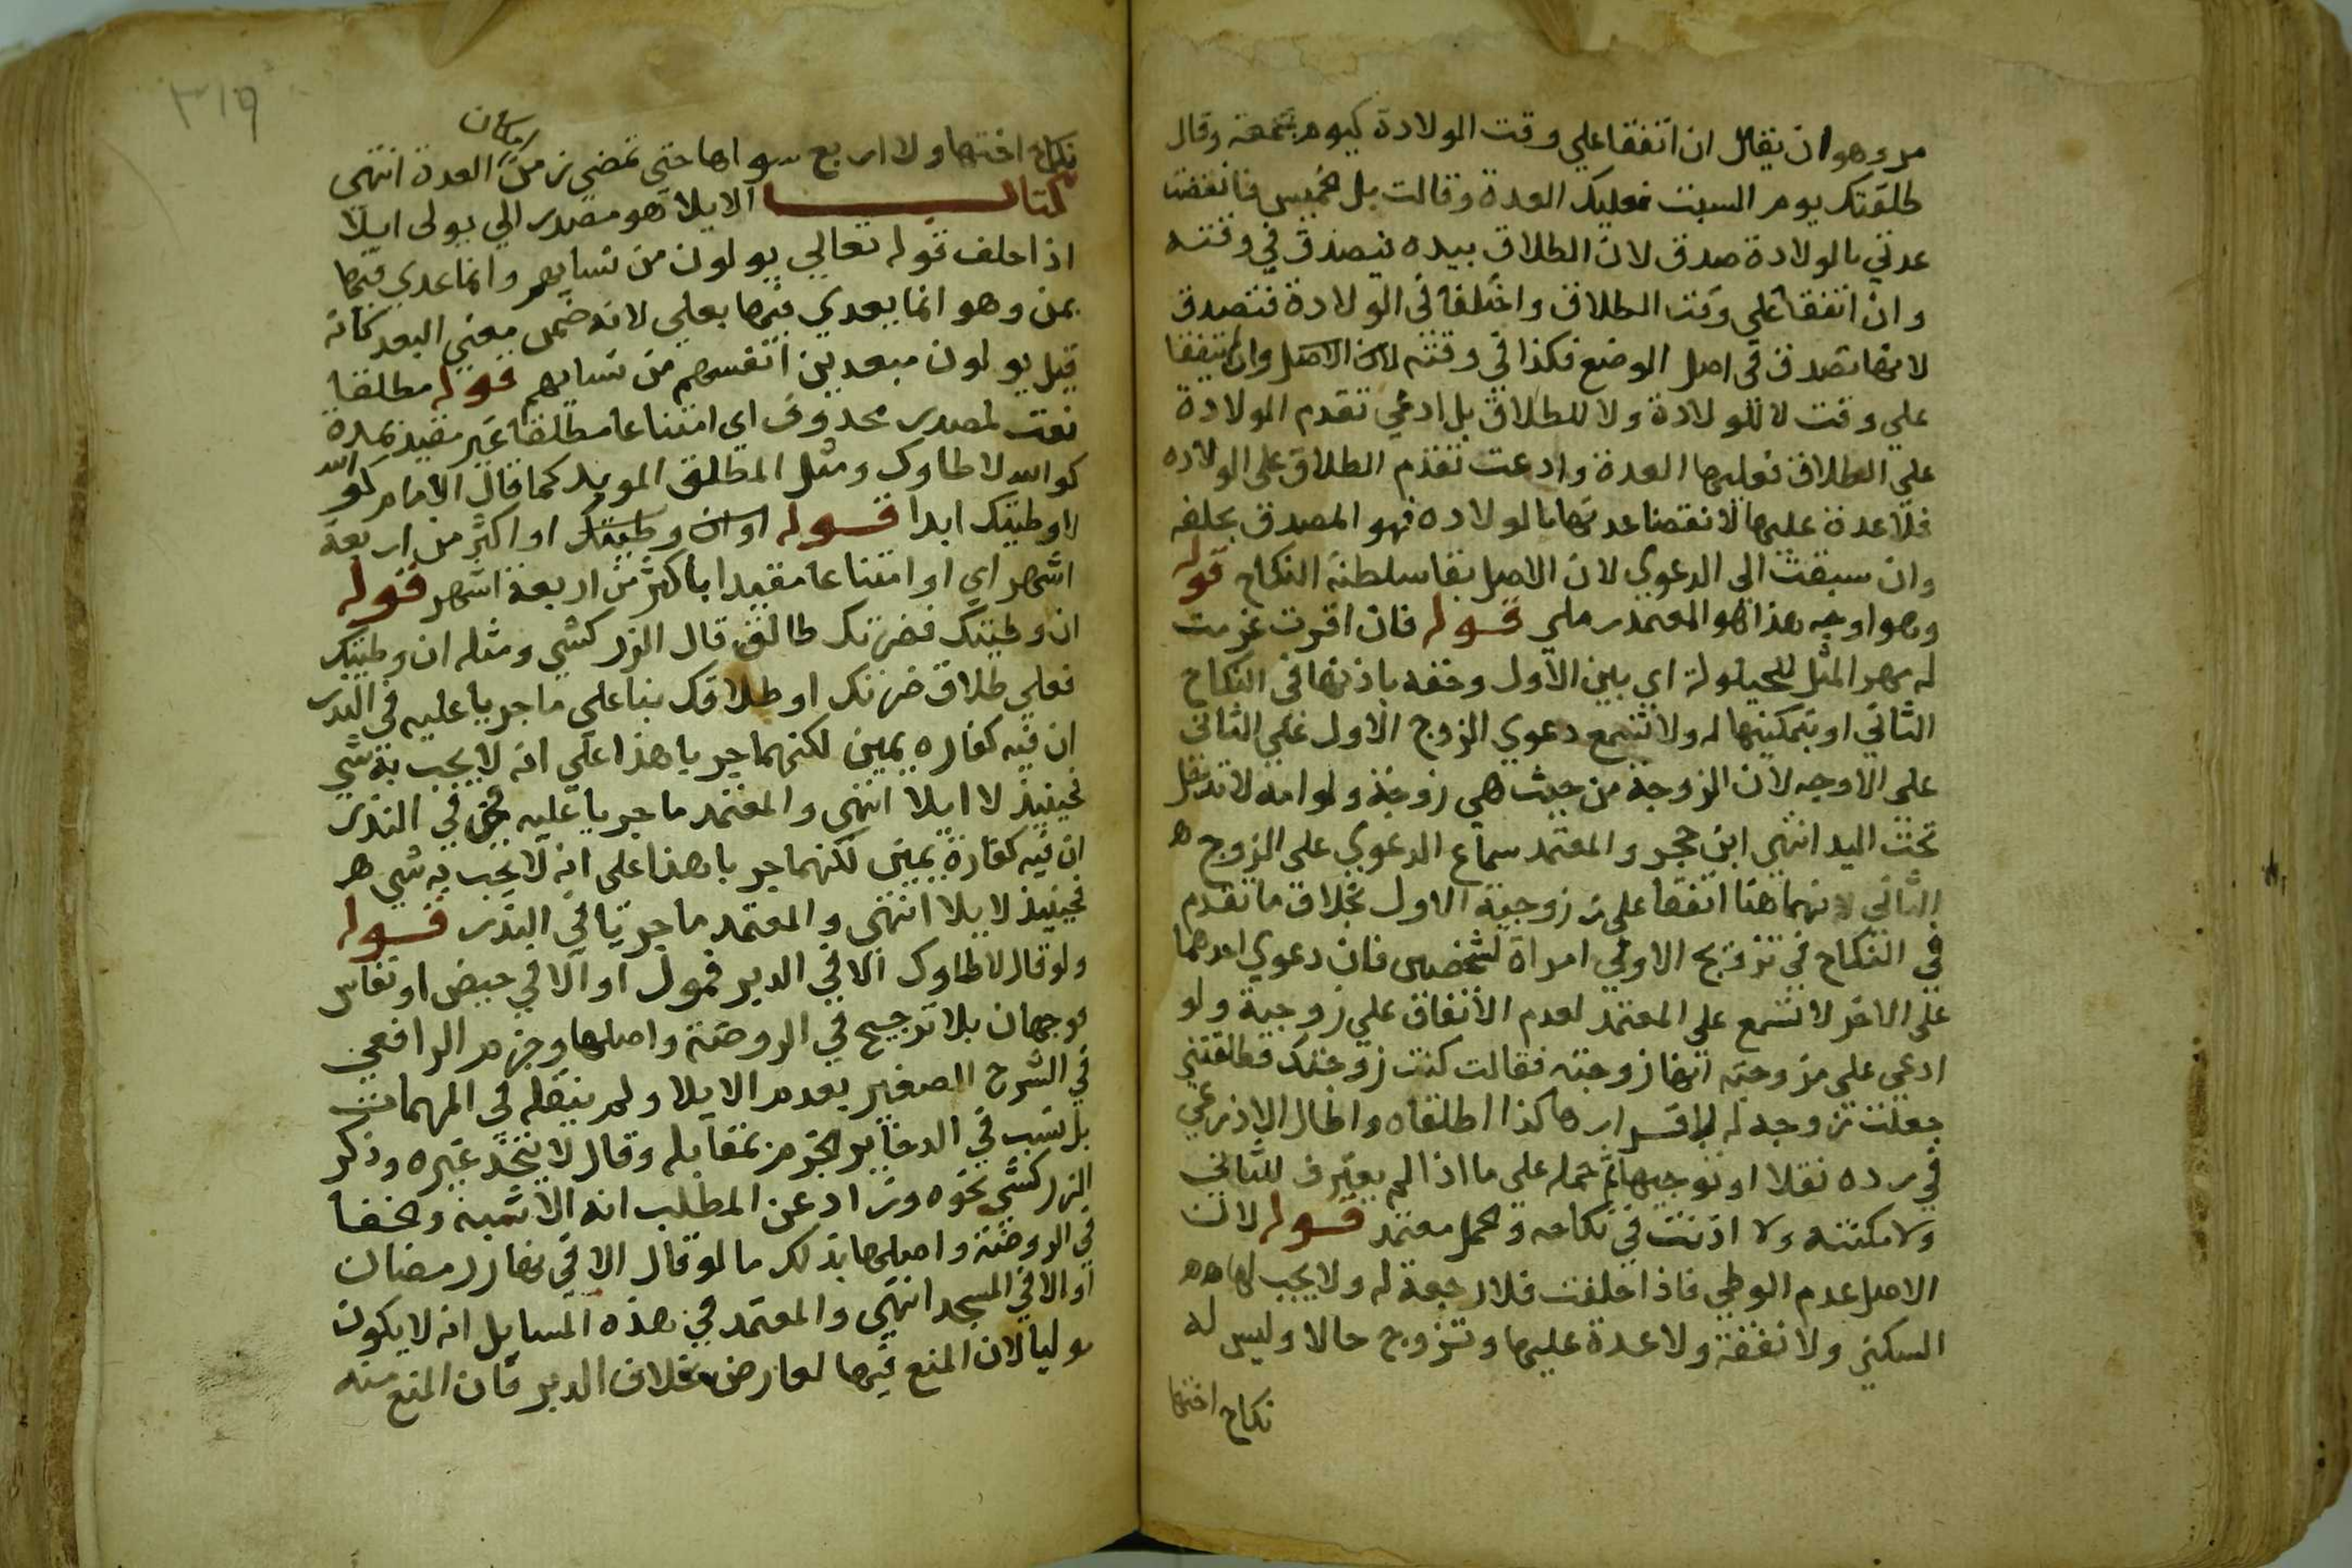 مر وهو ان يقال ان اتفقا علي وقت الولادة كيوم جمعة وقال
طلقتك يوم السبت فعليك العدة وقالت بل الخميس فانقضت
عدتي بالولادة صدق لان الطلاق بيده فيصدق في وقته
وان اتفقا علي وقت الطلاق واختلفا في الولادة فتصدق
لانها تصدق في اصل الوضع فكذا في وقته لان الاصل وان لم يتفقا
علي وقت لا للولادة ولا للطلاق بل ادعي تقدم الولادة
علي الطلاق فعليها العدة وادعت تقدم الطلاق علي الولاده
فلا عدة عليها لانقضا عدتها بالولاده فهو المصدق بحلفه
وان سبقت الى الدعوي لان الاصل بقا سلطنة النكاح قوله
وهو اوجه هذا هو المعتمد رملي قوله فان اقرت غرمت
له مهر المثل للحيلولة اي بين الاول وحقه باذنها في النكاح
الثاني او بتمكينها له ولا تسمع دعوي الزوج الاول علي الثاني
علي الاوجه لان الزوجة من حيث هي زوجة ولو امه لا تدخل
تحت اليد انتهي ابن حجر والمعتمد سماع الدعوي علي الزوج ه
الثاني لانهما هنا اتفقا علي زوجية الاول بخلاف ما تقدم
في النكاح في تزويج الاوفي امراة لشخصين فان دعوي احدهما
على الاخر لا تسمع على المعتمد لعدم الاتفاق علي زوجية ولو
ادعي علي مزوجة انها زوجته فقالت كنت زوجتك فطلقتني
جعلت زوجه له لاقرارها كذا اطلقاه واطال الاذرعي
في رده نقلا وتوجيها ثم حمله علي ما اذا لم يعترف للثاني
ولا مكنته ولا اذنت في نكاحه والحمل معتمد قوله لان
الاصل عدم الوطي فاذا حلفت فلا رجعة له ولا يجب لها هه
السكني ولا نفقة ولا عدة عليها وتتزوج حالا وليس له
نكاح اختها
٣١٩
نكاح اختها ولا اربع سواها حتي تمضي زمن امكان العدة انتهي
كتاب الايلا هو مصدر الي يولى ايلا
اذا حلف قوله تعالي يولون من نسايهم وانما عدي فيها
بمن وهو انما يعدي فيها بعلي لانه ضمن معني البعد كانه
قيل يولون مبعدين انفسهم من نسايهم قوله مطلقا
نعت لمصدر محذوف اي امتناعا مطلقا غير مقيد بمدة
كوالله لا اطاوك ومثل المطلق الموبد كما قال الامام كوالله
لا وطيتك ابدا قوله او ان وطيتك او اكثر من اربعة
اشهر اي او امتناعا مقيدا باكثر من اربعة اشهر قوله
ان وطيتك فضرتك طالق قال الزركشي ومثله ان وطيتك
فعلي طلاق ضرتك او طلاقك بنا علي ما جريا عليه في النذر
ان فيه كفاره يمين لكنهما جريا هذا علي انه لا يجب به شي
فحينيذ لا ايلا انتهى والمعتمد ما جريا عليه في النذر
ان فيه كفارة يمين لكنهما جريا هذا على انه لا يجب به شي هر
فحينيذ لا يلا انتهى والمعتمد ما جريا في النذر قوله
ولو قال لا اطاوك الا في الدبر فمول او الا في حيض او نفاس
فوجهان بلا ترجيح في الروضة واصلها وجزم الرافعي
في الشرح الصغير بعدم الايلا ولم ينقله في المهمات
بل نسب في الدخاير الجزم بمقابله وقال لا يتجه غيره وذكر
الزركشي نحوه وزاد عن المطلب انه الاشبه والحقا
في الروضة واصلها بذلك ما لو قال الا في نهار رمضان
او الا في المسجد انتهي والمعتمد في هذه المسايل انه لا يكون
موليا لان المنع فيها لعارض بخلاف الدبر فان المنع منه